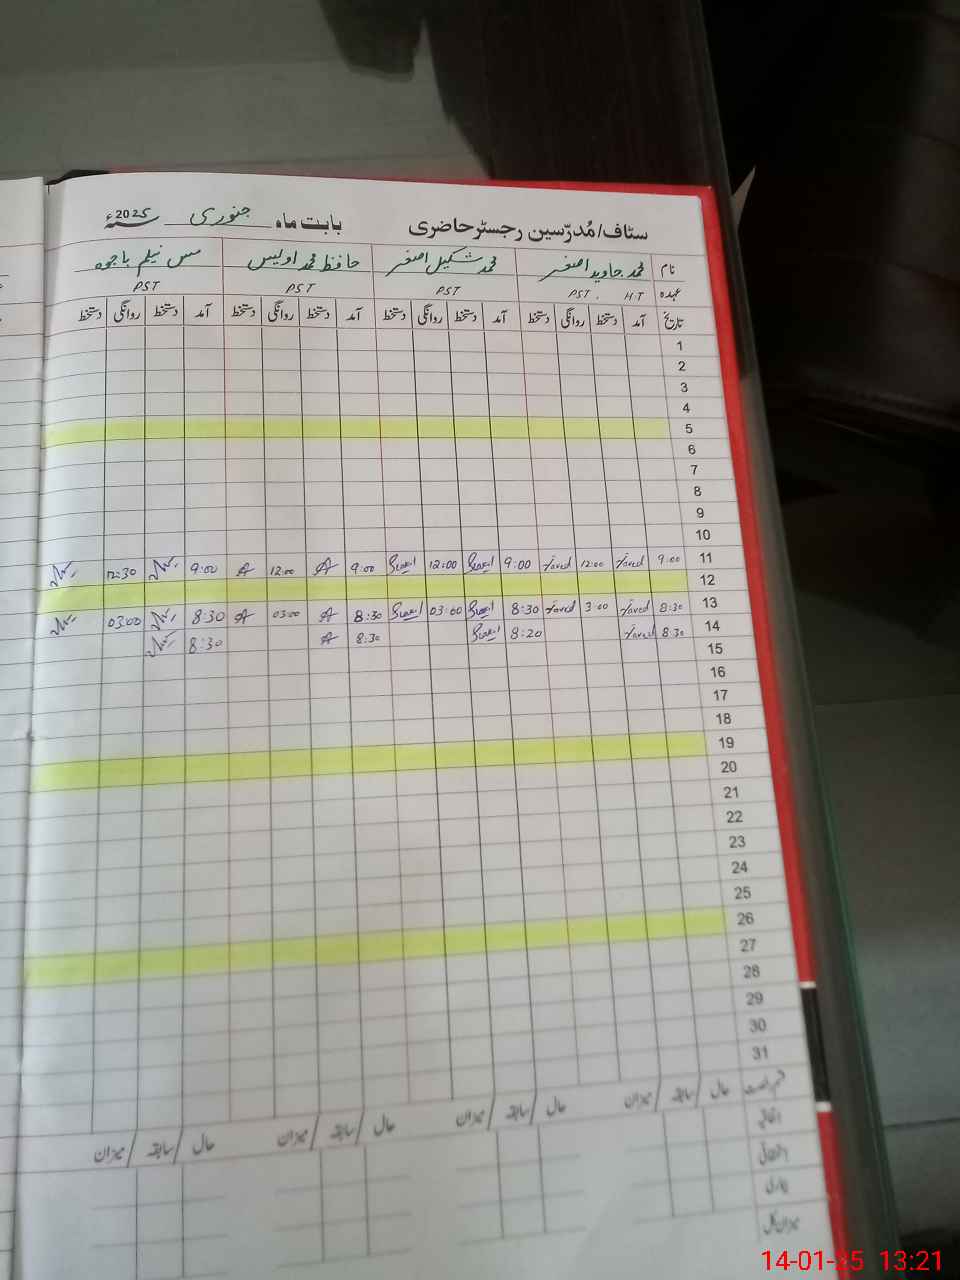 سٹاف/مُدرّسین رجسٹر حاضری بابت ماہ جنوری 2025ء
نام محمد جاوید اصغر محمد شکیل اصغر حافظ محمد اویس مس نیلم باجوہ
عہدہ PST. H.T PST PST PST
تاریخ آمد دستخط روانگی دستخط آمد دستخط روانگی دستخط آمد دستخط روانگی دستخط آمد دستخط روانگی دستخط
1
2
3
4
5
6
7
8
9
10
11 9:00 Javed 12:00 Javed 9:00 12:00 9:00 12:00 9:00 12:30
12
13 8:30 Javed 3:00 Javed 8:30 03:00 8:30 03:00 8:30 03:00
14 8:30 Javed 8:20 8:30 8:30
15
16
17
18
19
20
21
22
23
24
25
26
27
28
29
30
31
حال سابقہ میزان حال سابقہ میزان حال سابقہ میزان حال سابقہ میزان
اتفاقیہ
میزان کل
14-01-25 13:21